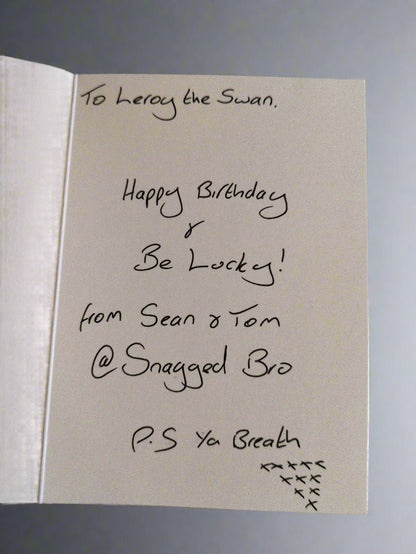 To Leroy the Swan.
Happy Birthday
&
Be Lucky!
from Sean & Tom
@Snagged Bro
P.S Ya Breath
xxxxx
xxx
xx
x